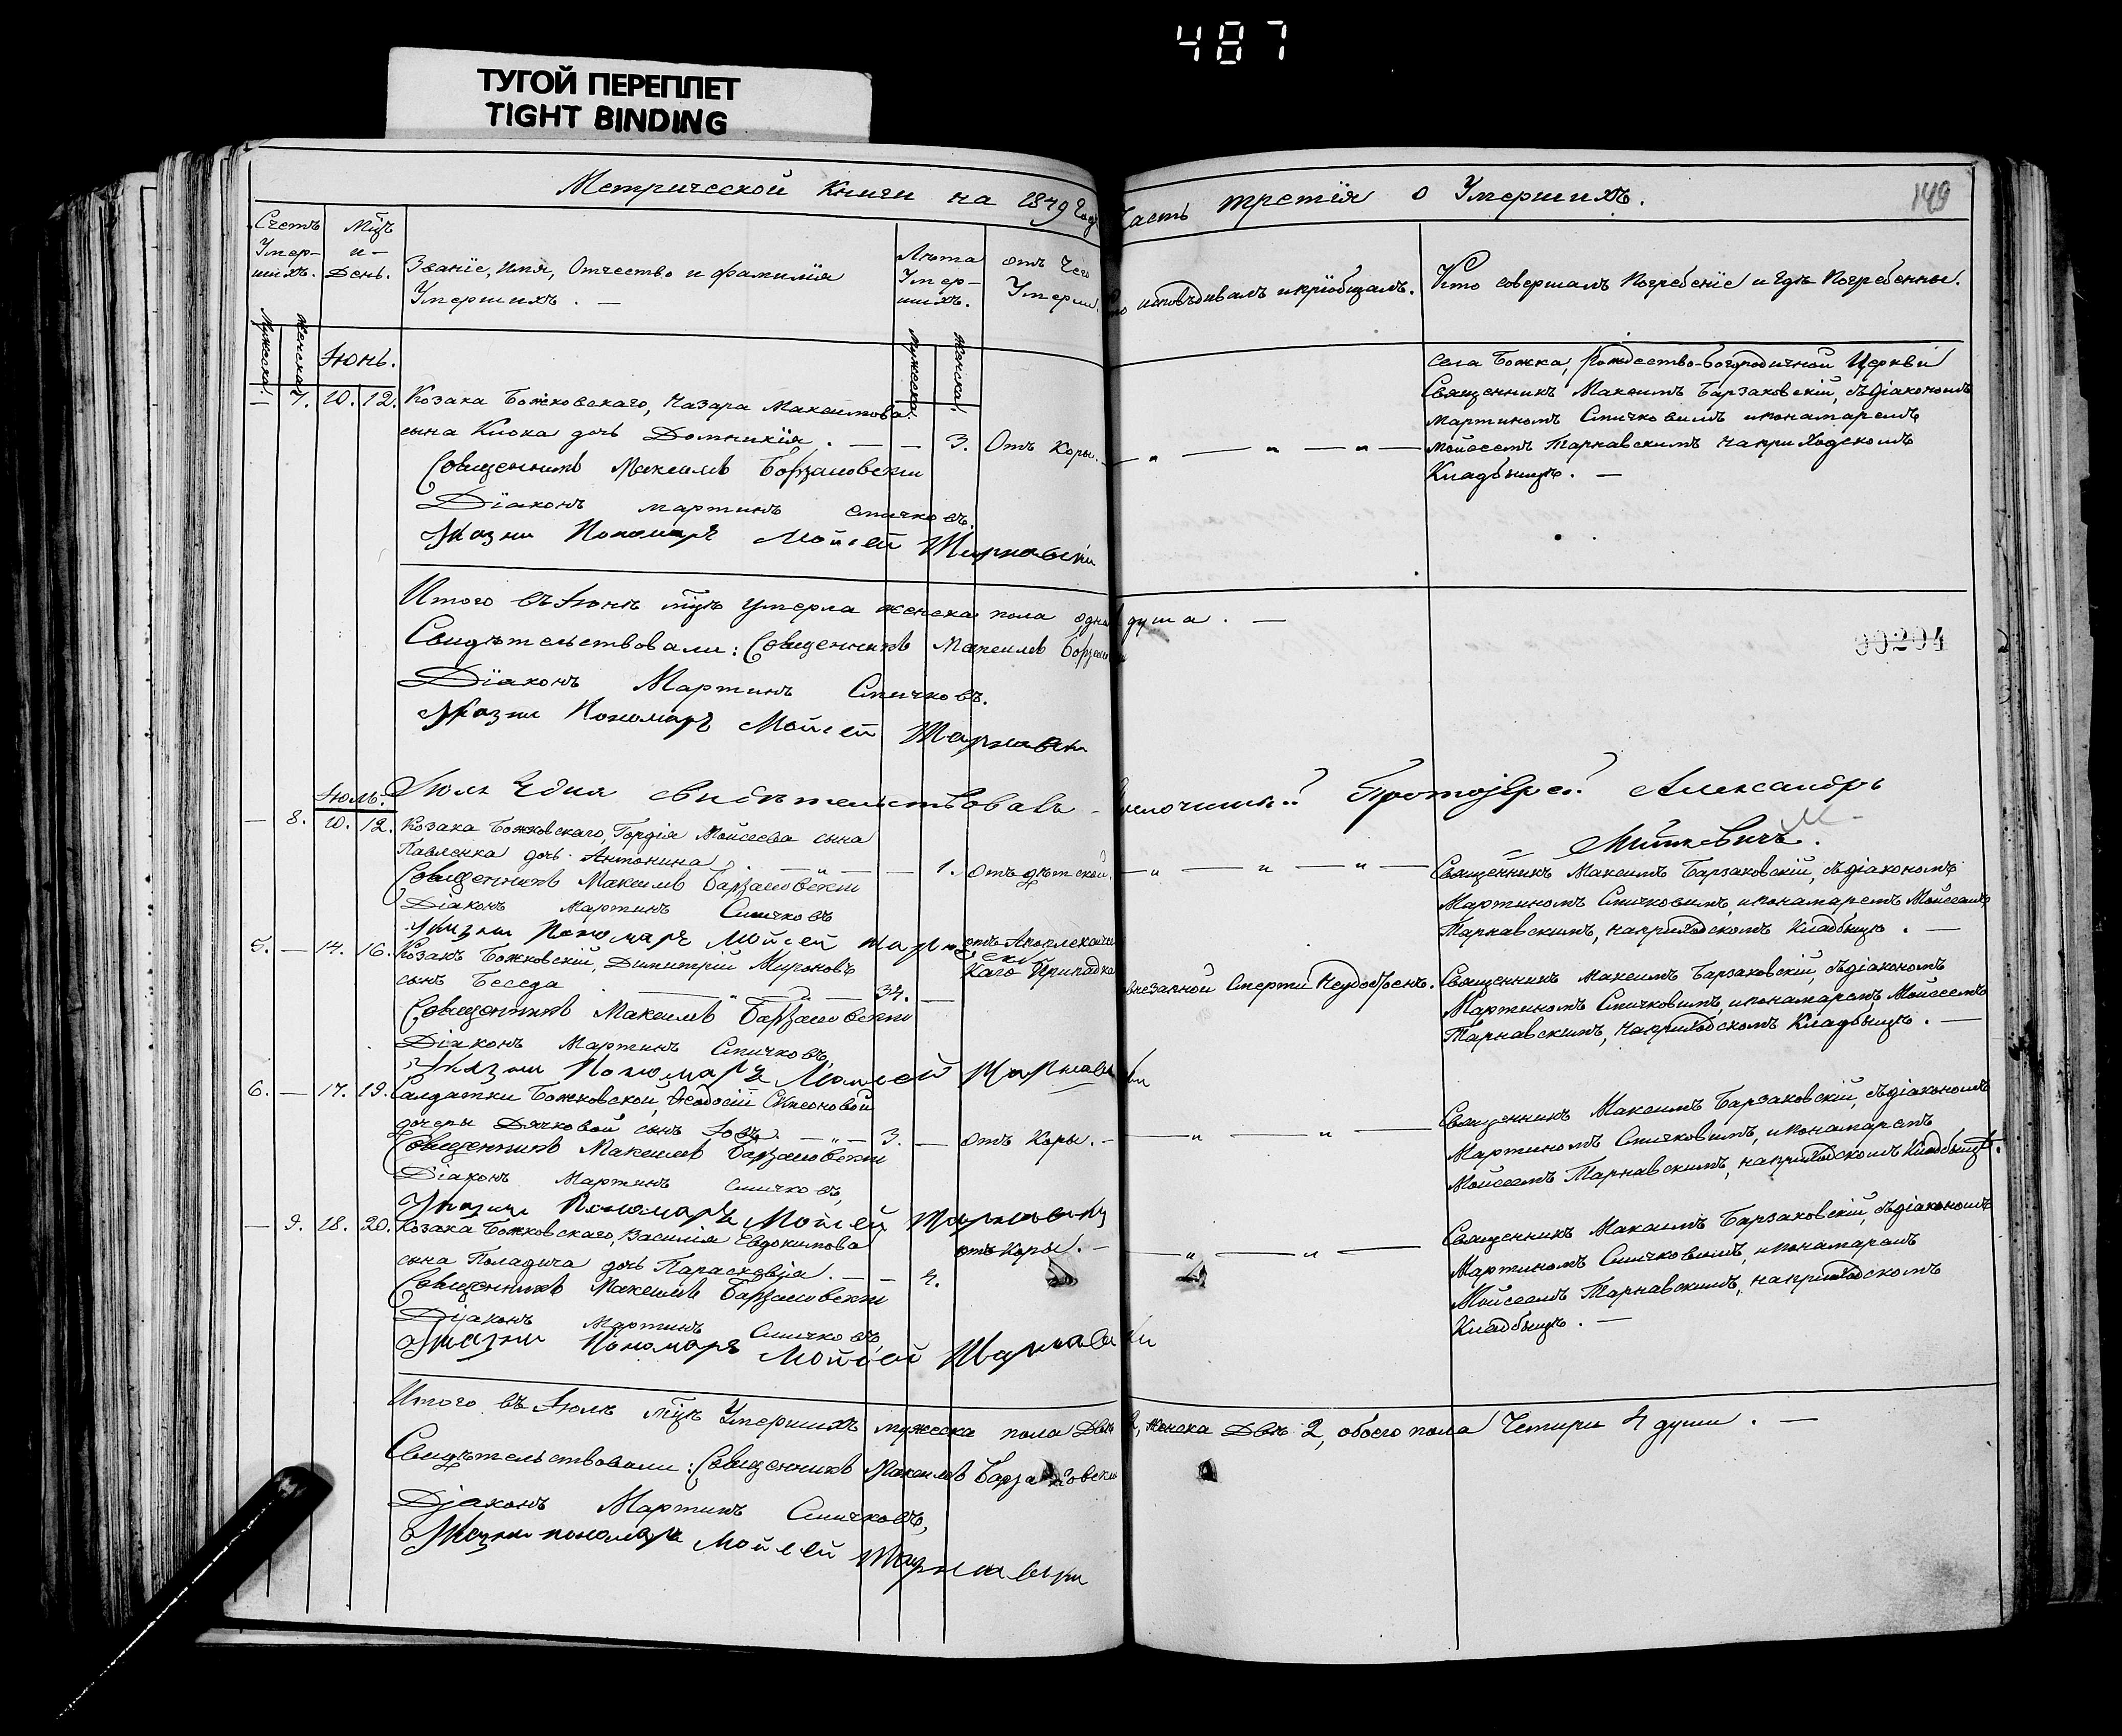 487
ТУГОЙ ПЕРЕПЛЕТ
TIGHT BINDING
Метрической Книги на 1849 Годъ Часть третія о Умершихъ.
149
Счетъ Умер-шихъ.
Мцъ и День.
Званіе, имя, Отчество и фамилія
Умершихъ. —
Лѣта Умер-шихъ.
отъ Чего Умерли
исповѣдывалъ и пріобщалъ.
Кто совершалъ Погребеніе и Гдѣ Погребенны.
Мужеска.
Женска.
Мужеска.
Женска.
Іюнь.
— 7. 10. 12. Козака Божковскаго, Назара Максимова
сына Кнока дочь Домникія. — — 3. Отъ Коры. — „ — „ — „ —
Села Божка, Рождество-Богородичной Церкви
Священникъ Максимъ Барзаковскій, съ діакономъ
Мартиномъ Спичковимъ и понамаремъ
Мойсеемъ Тарнавскимъ на при ходскомъ
Кладбыщѣ. —
Священникъ Максимъ Борзаковскій
Діаконъ мартинъ спичковъ.
Пономарь Мойсей Тарнавскій
Итого въ Іюнѣ мцѣ умерла женска пола одна душа. —
Свидѣтельствовали: Священникъ Максимъ
00204
Діаконъ Мартинъ Спичковъ.
Пономарь Мойсей Тарнавскій
Іюля свидѣтельствовалъ Протоіерей Александръ
Миткевичъ.
Іюль.
— 8. 10. 12. Козака Божковскаго, Гордія Мойсеева сына
Павленка дочь Антонина. — „ — — 1. Отъ дѣтской. — „ — „ — „ —
Священникъ Максимъ Барзаковскій, съ діакономъ
Мартиномъ Спичковимъ, и понамаремъ Мойсеемъ
Тарнавскимъ, на приходскомъ Кладбыщѣ. —
Священникъ Максимъ Барзаковскій
Діаконъ Мартинъ Спичковъ
Пономарь Мойсей
5. — 14. 16. Козакъ Божковскій, Димитрій Мироновъ
сынъ Беседа — 34. —
отъ Апоплекси
ческаго Припадка
внезапной Смерти Неудобоенъ.
Священникъ Максимъ Барзаковскій, съ діакономъ
Мартиномъ Спичковимъ, и понамаремъ Мойсеемъ
Тарнавскимъ, на приходскомъ Кладбыщѣ. —
Священникъ Максимъ Барзаковскій
Діаконъ Мартинъ Спичковъ,
Пономарь Мойсей Тарнавскій
6. — 17. 19. Салдатки Божковской, Феодосіи Симеоновой
дочеры Дячковой сынъ Іовъ. — „ — 3. — отъ Коры. — „ — „ —
Священникъ Максимъ Барзаковскій, съ діакономъ
Мартиномъ Спичковимъ, и понамаремъ
Мойсеемъ Тарнавскимъ, на приходскомъ Кладбыщѣ.
Священникъ Максимъ Барзаковскій
Діаконъ Мартинъ Спичковъ,
Пономарь Мойсей Тарнавскій
— 9. 18. 20. Козака Божковскаго, Василія Евдокимова
сына Поладича дочь Параскевія. — — 4. отъ Коры. — „ — „ —
Священникъ Максимъ Барзаковскій, съ діакономъ
Мартиномъ Спичковимъ, и понамаремъ
Мойсеемъ Тарнавскимъ, на приходскомъ
Кладбыщѣ. —
Священникъ Максимъ Барзаковскій
Діаконъ Мартинъ Спичковъ,
Пономарь Мойсей Тарнавскій
Итого въ Іюлѣ мцѣ Умершихъ мужеска пола Двѣ 2, женска Двѣ 2, обоего пола Четыри 4 души. —
Свидѣтельствовали: Священникъ Максимъ Барзаковскій
Діаконъ Мартинъ Спичковъ,
пономарь Мойсей Тарнавскій